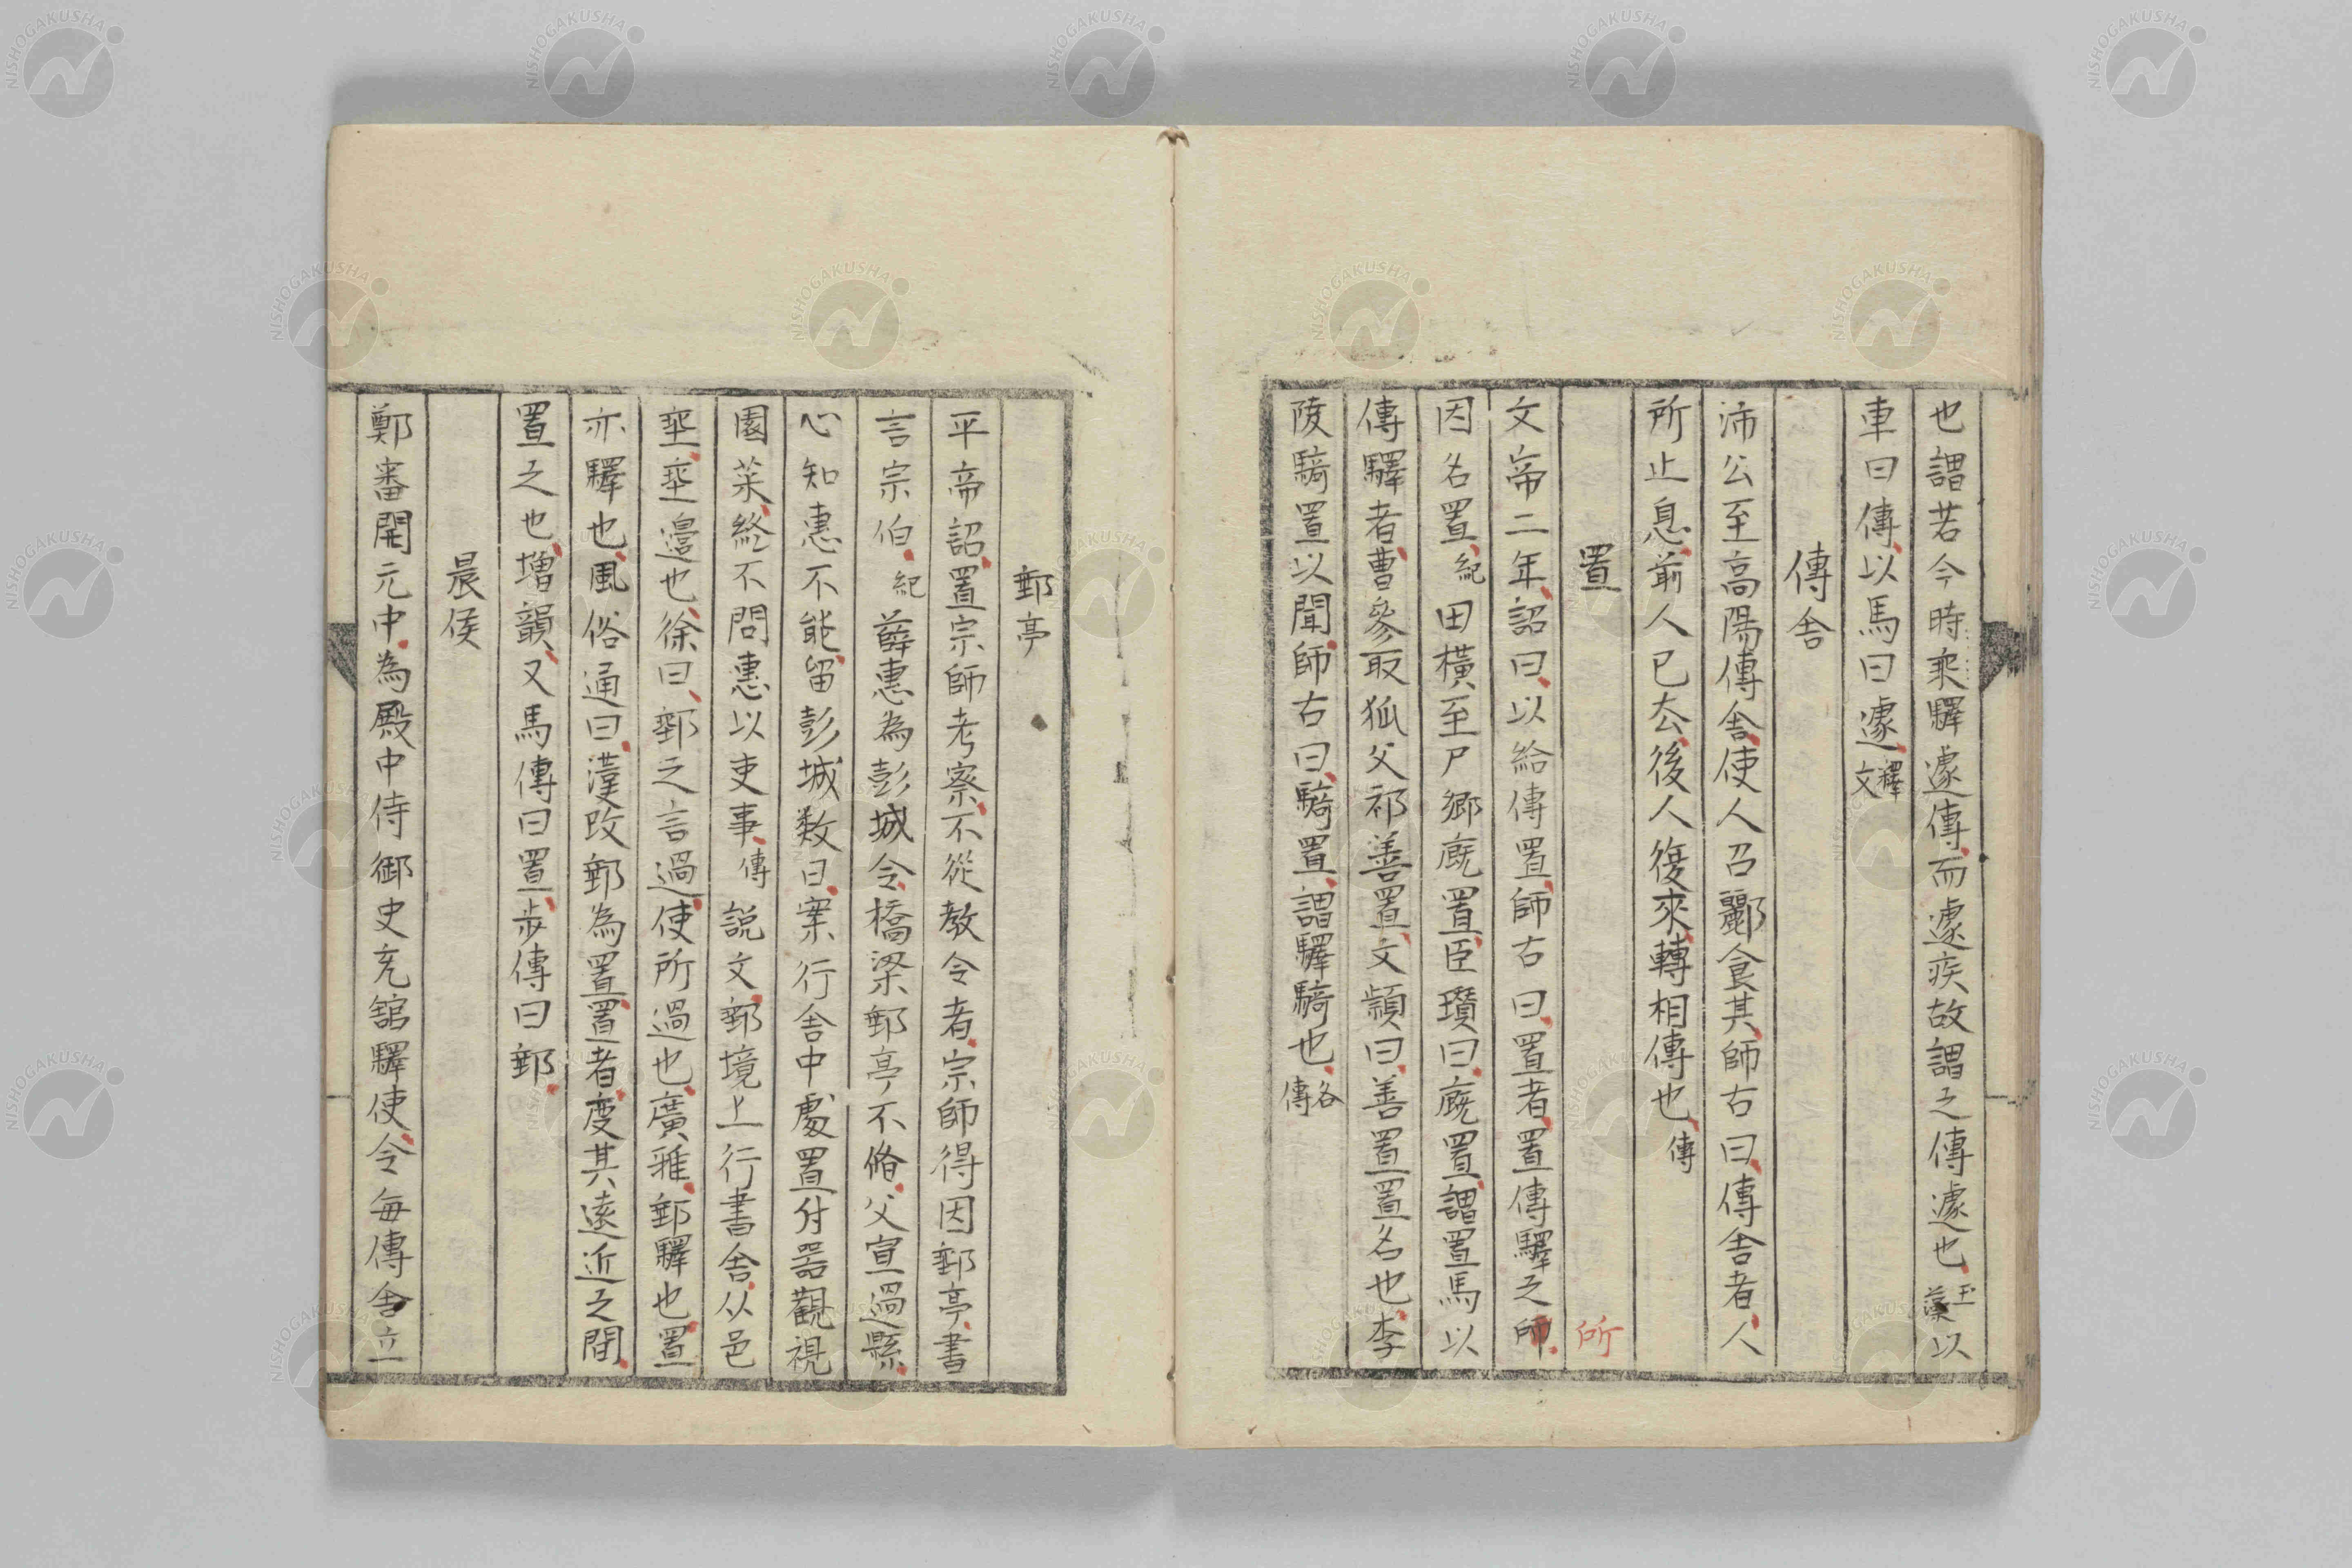 也謂若今時乘驛遽傳而遽疾故謂之傳遽也玉藻以
車曰傳以馬曰遽釋文
傳舍
沛公至高陽傳舍使人召酈食其師古曰傳舍者人
所止息前人已去後人復來轉相傳也傳
置
所
文帝二年詔曰以給傳置師古曰置者置傳驛之師
因名置紀田橫至尸鄉廐置臣瓚曰廐置謂置馬以
傳驛者曹參取狐父祁善置文穎曰善置置名也李
陵騎置以聞師古曰騎置謂驛騎也各傳
郵亭
平帝詔置宗師考察不從教令者宗師得因郵亭書
言宗伯紀薛惠為彭城令橋梁郵亭不脩父宣過縣
心知惠不能留彭城数日案行舍中處置什器觀視
園菜終不問惠以吏事傳說文郵境上行書舍从邑
垂垂邉也徐曰郵之言過使所過也廣雅郵驛也置
亦驛也風俗通曰漢改郵為置置者度其遠近之間
置之也增韻又馬傳曰置步傳曰郵
晨候
鄭審開元中為殿中侍御史充舘驛使令每傳舍立
NISHOGAKUSHA